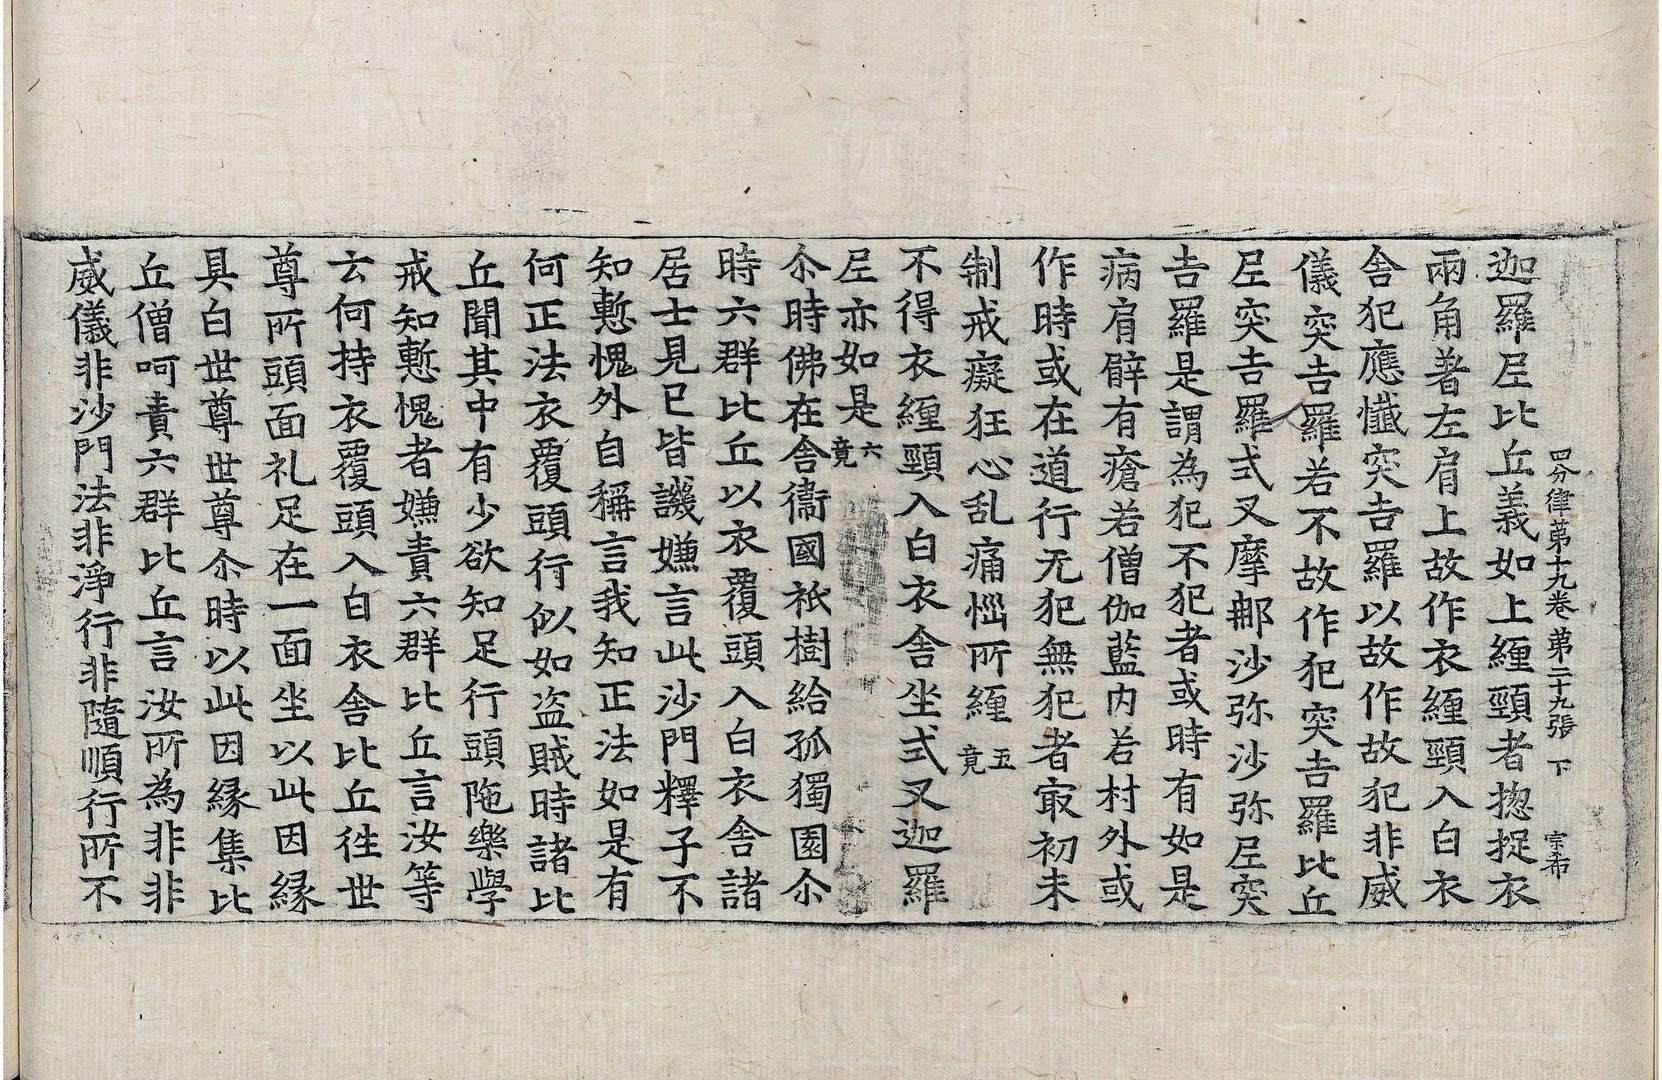 四分律苐十九卷　苐二十九張　下　宗希
迦羅𡰱比丘義如上纏頸者揔捉衣
兩角著左肩上故作衣纏頸入白衣
舎犯應懺突吉羅以故作故犯非威
儀突吉羅若不故作犯突吉羅比丘
𡰱突吉羅式叉摩𨙻沙弥沙弥𡰱突
吉羅是謂為犯不犯者或時有如是
病肩臂有瘡若僧伽藍内若村外或
作時或在道行无犯無犯者㝡初未
制戒癡狂心乱痛惱所纏五竟
不得衣纏頸入白衣舎坐式叉迦羅
𡰱亦如是六竟
尒時佛在舎衞國祇樹給孤獨園尒
時六群比丘以衣覆頭入白衣舎諸
居士見已皆譏嫌言此沙門釋子不
知慙愧外自稱言我知正法如是有
何正法衣覆頭行似如盗賊時諸比
丘聞其中有少欲知足行頭陁樂學
戒知慙愧者嫌責六群比丘言汝等
云何持衣覆頭入白衣舎比丘徃世
尊所頭面礼足在一面坐以此因緣
具白世尊世尊尒時以此因緣集比
丘僧呵責六群比丘言汝所為非非
威儀非沙門法非淨行非隨順行所不